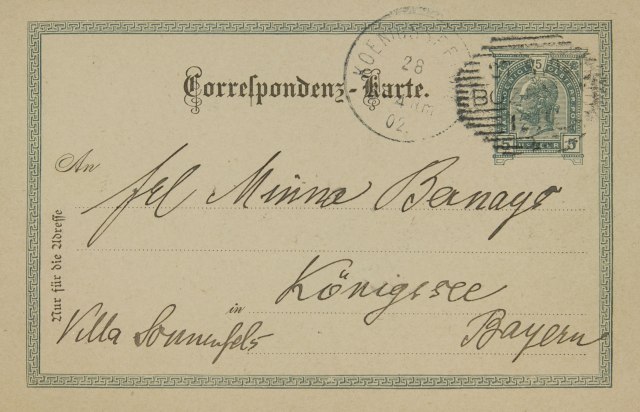 Correspondenz-Karte.
KOENIGSSEE
28
4 NM
02.
5 HELLER 5
An
frl Minna Bernays
Nur für die Adresse
in Königssee
Villa Sonnenfels
Bayern